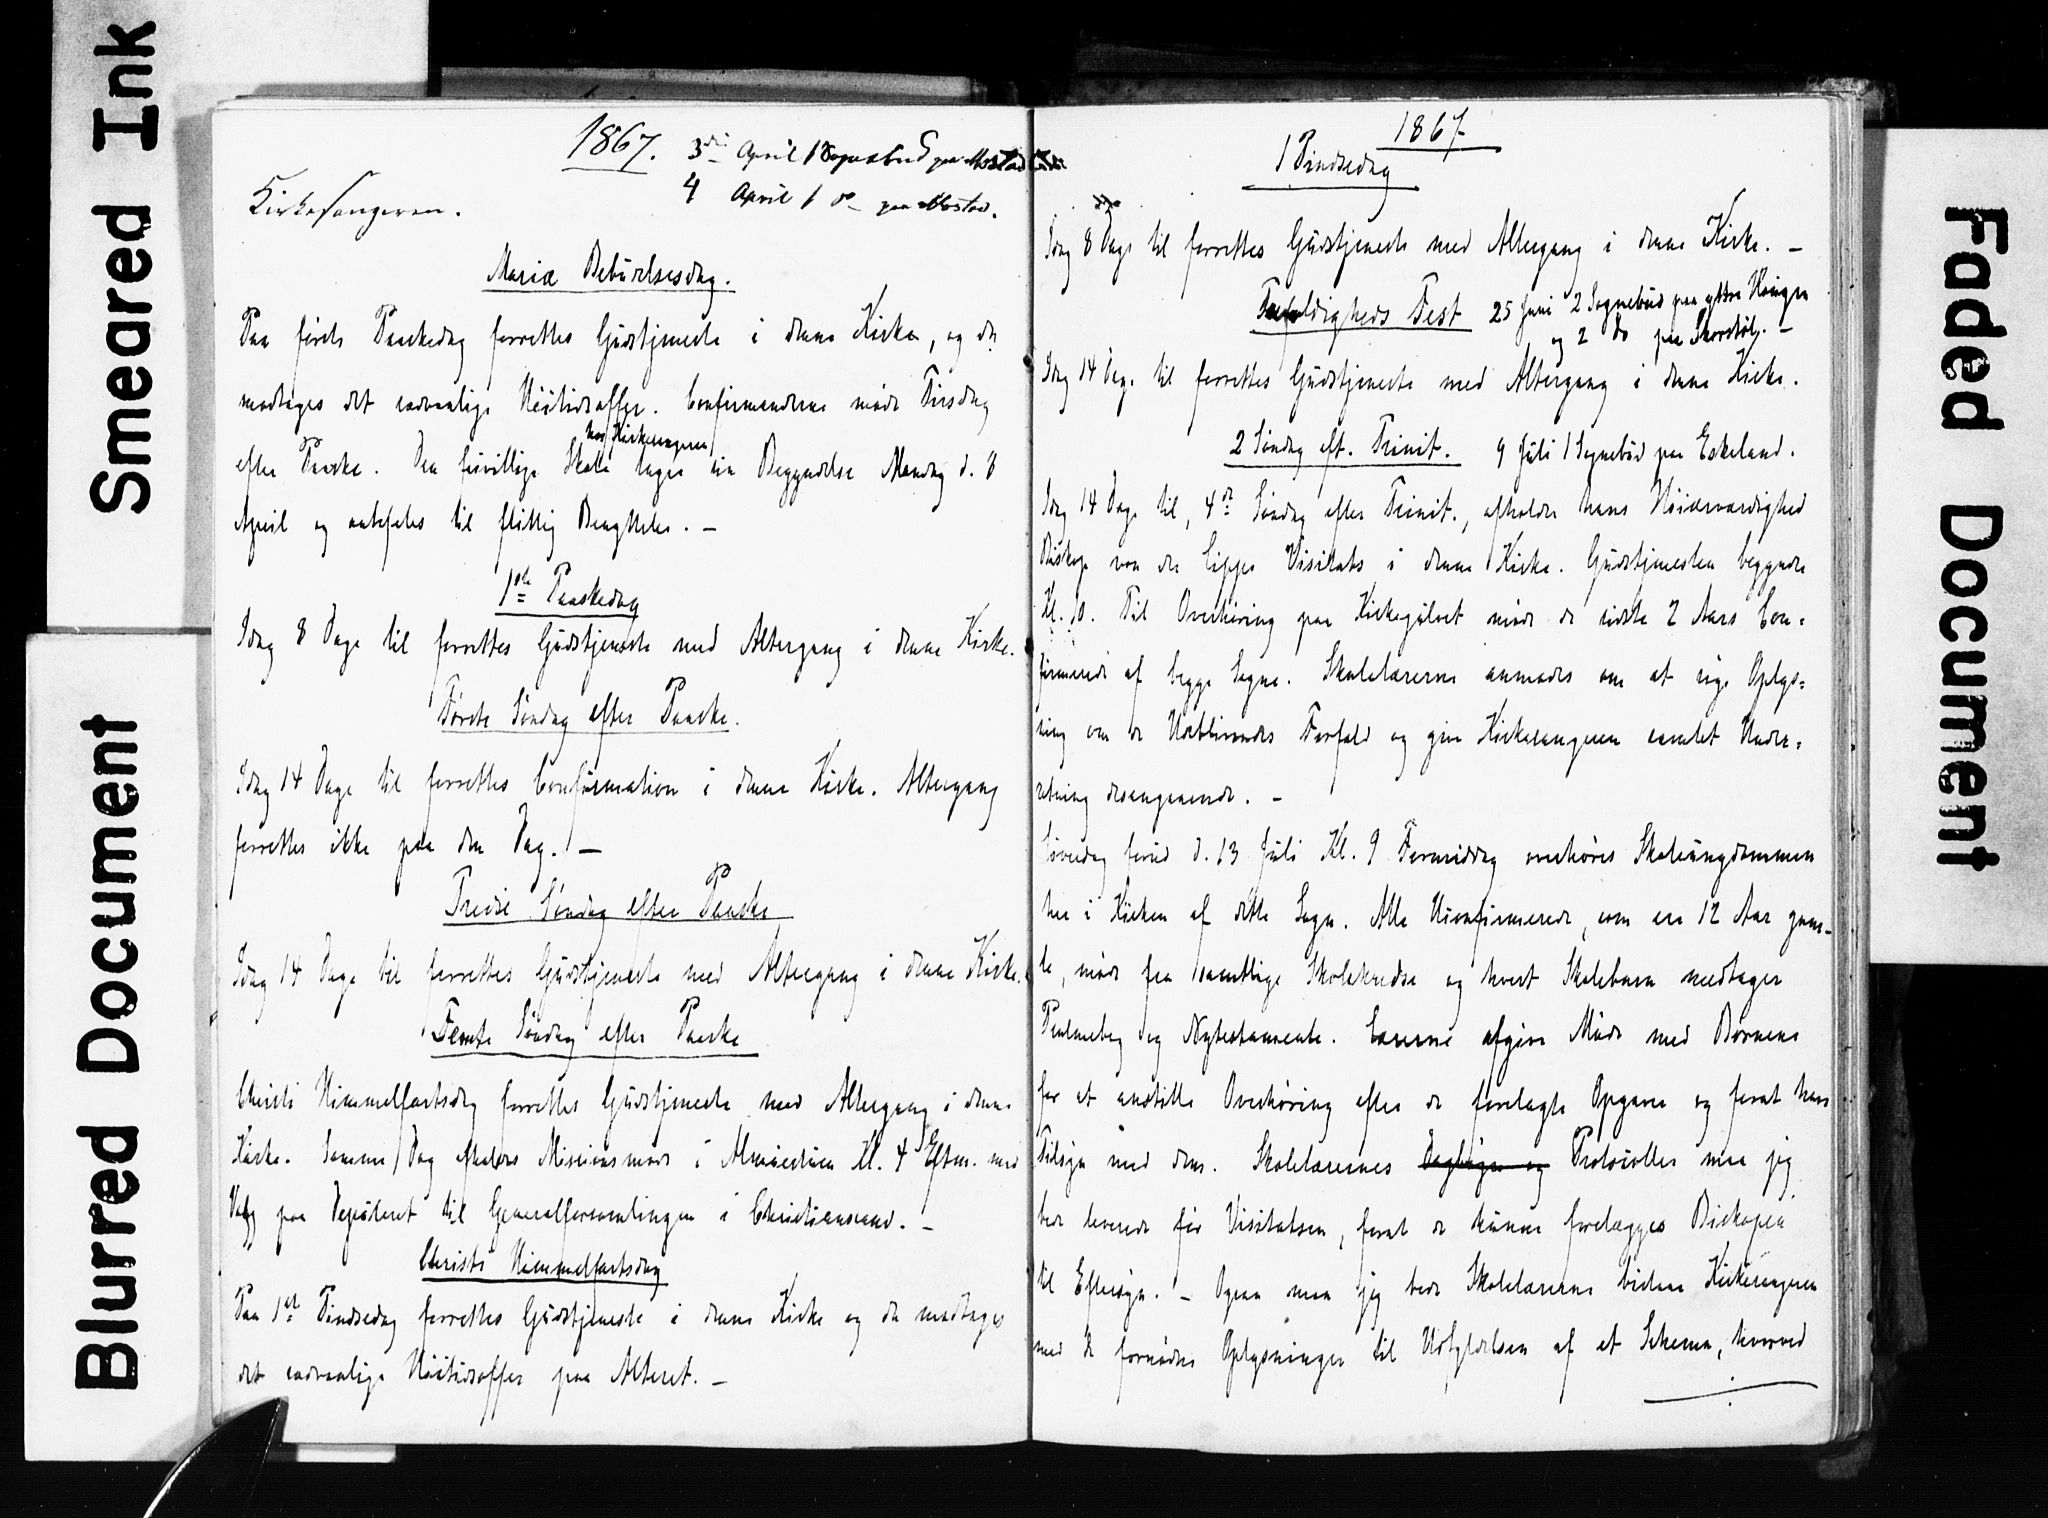 Smeared Ink
Blurred Document
1867.
3die April 1 Sognebud paa
4 April 1 do paa Mostad.
Kirkesangeren.
Mariæ Bebudelsesdag.
Paa første Paaskedag forrettes Gudstjeneste i denne Kirke, og da
modtages det sædvanlige Høitidsoffer. Confirmanderne møde Tirsdag
efter Paaske. Den frivillige Skole hos Kirkesangeren tager sin Begyndelse Mandag d. 8
April og anbefales til flittig Benyttelse. –
1ste Paaskedag
Idag 8 Dage til forrettes Gudstjeneste med Altergang i denne Kirke.
Første Søndag efter Paaske.
Idag 14 Dage til forrettes Confirmation i denne Kirke. Altergang
forrettes ikke paa den Dag. –
Tredie Søndag efter Paaske
Idag 14 Dage til forrettes Gudstjeneste med Altergang i denne Kirke.
Femte Søndag efter Paaske
Christi Himmelfartsdag forrettes Gudstjeneste med Altergang i denne
Kirke. Samme Dag afholdes Missionsmøde i Kl. 4 Efterm. med
Valg paa Deputeret til Generalforsamlingen i Christianssand. –
Christi Himmelfartsdag
Paa 1ste Pindsedag forrettes Gudstjeneste i denne Kirke og da modtages
det sædvanlige Høitidsoffer paa Alteret. –
1867
1 Pindsedag
Idag 8 Dage til forrettes Gudstjeneste med Altergang i denne Kirke. –
Trefoldigheds Fest 25 Juni 2 Sognebud paa ydre Haugen
og 2 do paa Skorstøl. –
Idag 14 Dage til forrettes Gudstjeneste med Altergang i denne Kirke.
2 Søndag eft. Trinit. 9 Juli 1 Sognebud paa Eskeland.
Idag 14 Dage til, 4de Søndag efter Trinit., afholder hans Høiærværdighed
Biskop von der Lippe Visitats i denne Kirke. Gudstjenesten begynder
Kl. 10. Til Overhøring paa Kirkegulvet møde de sidste 2 Aars Con-
firmerede af begge Sogne. Skolelærerne anmodes om at søge Oplys-
ning om de Udeblivendes Forfald og give Kirkesangeren samlet Under-
retning desangaaende. –
Løverdag forud d. 13 Juli Kl. 9 Formiddag overhøres Skoleungdommen
her i Kirken af dette Sogn. Alle Uconfirmerede, som ere 12 Aar gam-
le, møde fra samtlige Skolekredse og hvert Skolebarn medtager
Psalmebog og Nytestamente. Lærerne afgive Møde med Børnene
for at anstille Overhøring efter de forelagte Opgaver og forat have
Tilsyn med dem. Skolelærernes Dagbøger og Protocoller maa jeg
bede leverede før Visitatsen, forat de kunne forelægges Biskopen
til Eftersyn. – Ogsaa maa jeg bede Skolelærerne bistaa Kirkesangeren
med de fornødne Oplysninger til Udfyldelsen af et Schema, hvorved
Faded Document